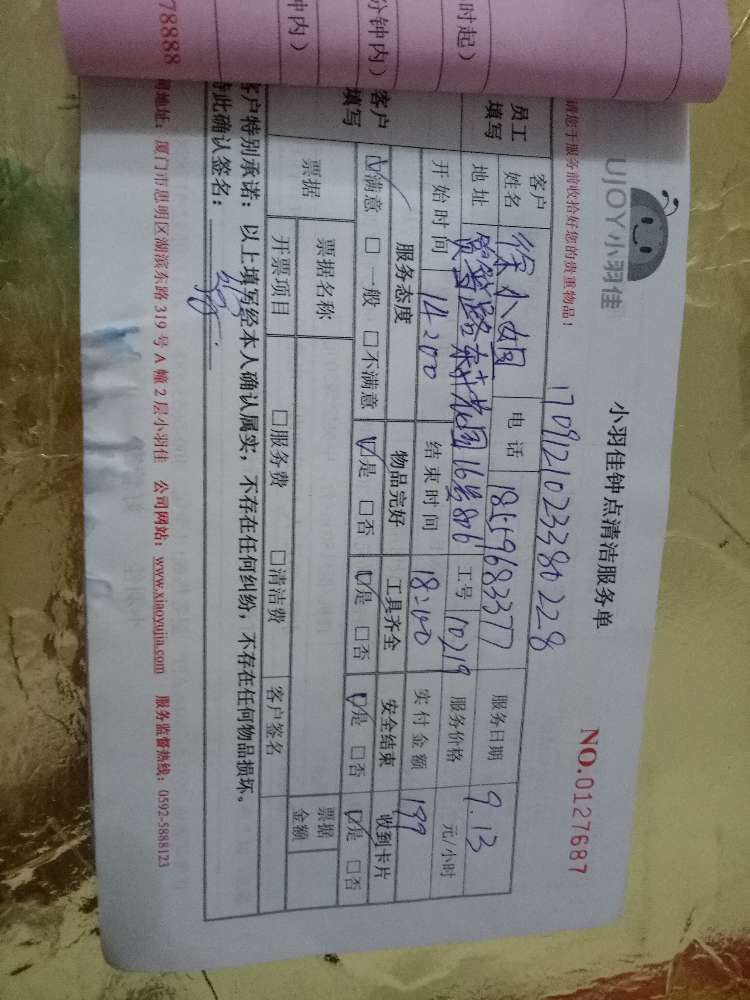 78888
钟内）
分钟内）
时起）
UJOY小羽佳
小羽佳钟点清洁服务单
NO.0127687
请您于服务前收拾好您的贵重物品！
1709121023380228
员工填写
客户姓名 徐小姐 电话 18559683377 服务日期 9.13
地址 筼筜路 花园16号806 工号 10219 服务价格 元/小时
开始时间 14:00 结束时间 18:00 实付金额 139
客户填写
服务态度 物品完好 工具齐全 安全结束 收到卡片
☑满意 □一般 □不满意 ☑是 □否 ☑是 □否 ☑是 □否 ☑是 □否
票据 票据名称 票据金额
开票项目 □服务费 □清洁费 客户签名
客户特别承诺：以上填写经本人确认属实，不存在任何纠纷，不存在任何物品损坏。
特此确认签名：
司地址：厦门市思明区湖滨东路319号A幢2层小羽佳 公司网站：www.xiaoyujia.com 服务监督热线：0592-5888123